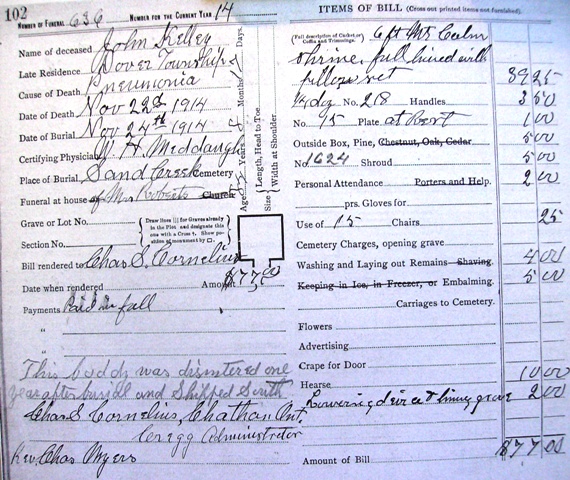 102
NUMBER OF FUNERAL 636 NUMBER FOR THE CURRENT YEAR 14
Name of deceased John Kelley
Late Residence Dover Township
Cause of Death Pneumonia
Date of Death Nov 22nd 1914
Date of Burial Nov 24th 1914
Certifying Physician W. H. Middaugh
Place of Burial Sand Creek Cemetery
Funeral at house of Mrs Roberts Church
Aged Years Months Days.
Size Length, Head to Toe
Width at Shoulder
Grave or Lot No.
Section No.
Draw lines ||| for Graves already in the Plot and designate this one with a Cross †. Show position of monument by □.
Bill rendered to Chas S. Cornelius
Date when rendered Amount $77.00
Payments Paid in full
"
"
This body was disintered one
year after burial and Shipped South
Chas S Cornelius, Chathan Ont.
Cregg Administrator
Rev Chas Myers
ITEMS OF BILL (Cross out printed items not furnished).
(Full description of Casket, or Coffin and Trimmings. 6 ft Mt Calm
shrine, full lined with
pillow set 39 25
1/4 doz No. 218 Handles 3 50
No. 95 Plate at Rest 1 00
Outside Box, Pine, Chestnut, Oak, Cedar 5 00
No 1624 Shroud 5 00
Personal Attendance Porters and Help. 2 00
prs. Gloves for
Use of 15 Chairs 25
Cemetery Charges, opening grave
Washing and Laying out Remains Shaving. 4 00
Keeping in Ice, in Freezer, or Embalming. 5 00
Carriages to Cemetery.
Flowers
Advertising
Crape for Door
Hearse 10 00
Lowering device & lining grave 2 00
Amount of Bill $77 00